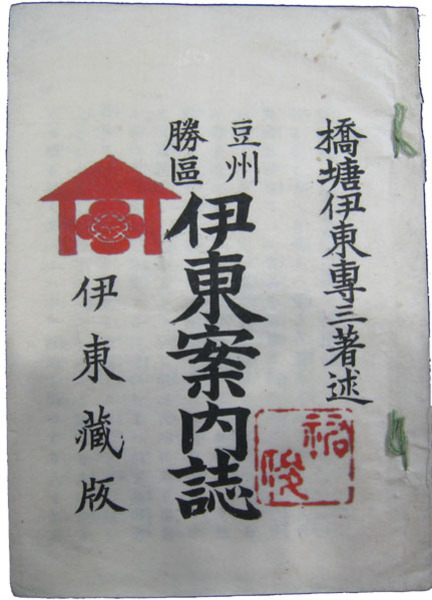 橋塘伊東專三著述
豆州
勝區
伊東案内誌
伊東藏版
祐